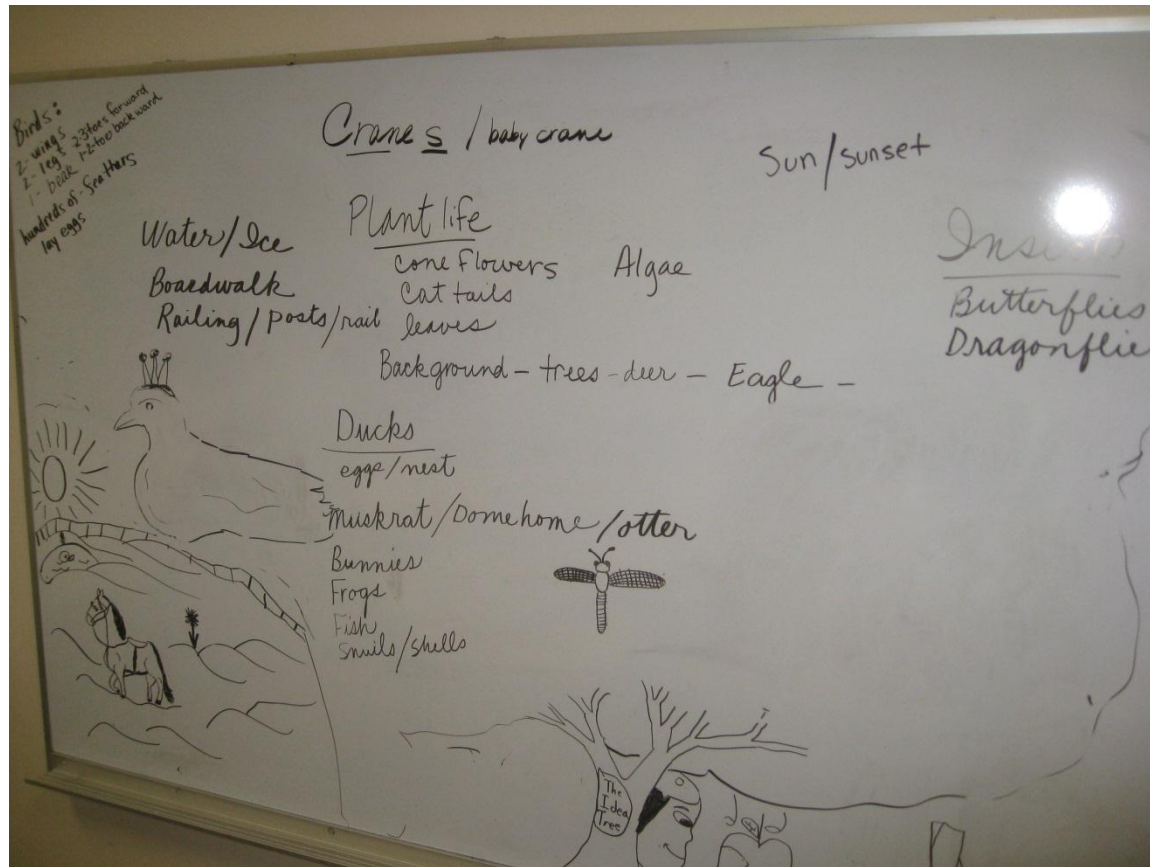 Birds:
2- wings
2- legs 2-3 toes forward
1- beak 1-2-toes backward
hundreds of - feathers
lay eggs
Cranes / baby crane
Sun/sunset
Water/Ice
Boardwalk
Railing/posts/rail
Plant life
cone flowers Algae
Cat tails
leaves
Background - trees - deer - Eagle -
Insects
Butterflies
Dragonflie
Ducks
eggs/nest
Muskrat/Domehome/otter
Bunnies
Frogs
Fish
Snails/shells
The
Idea
Tree